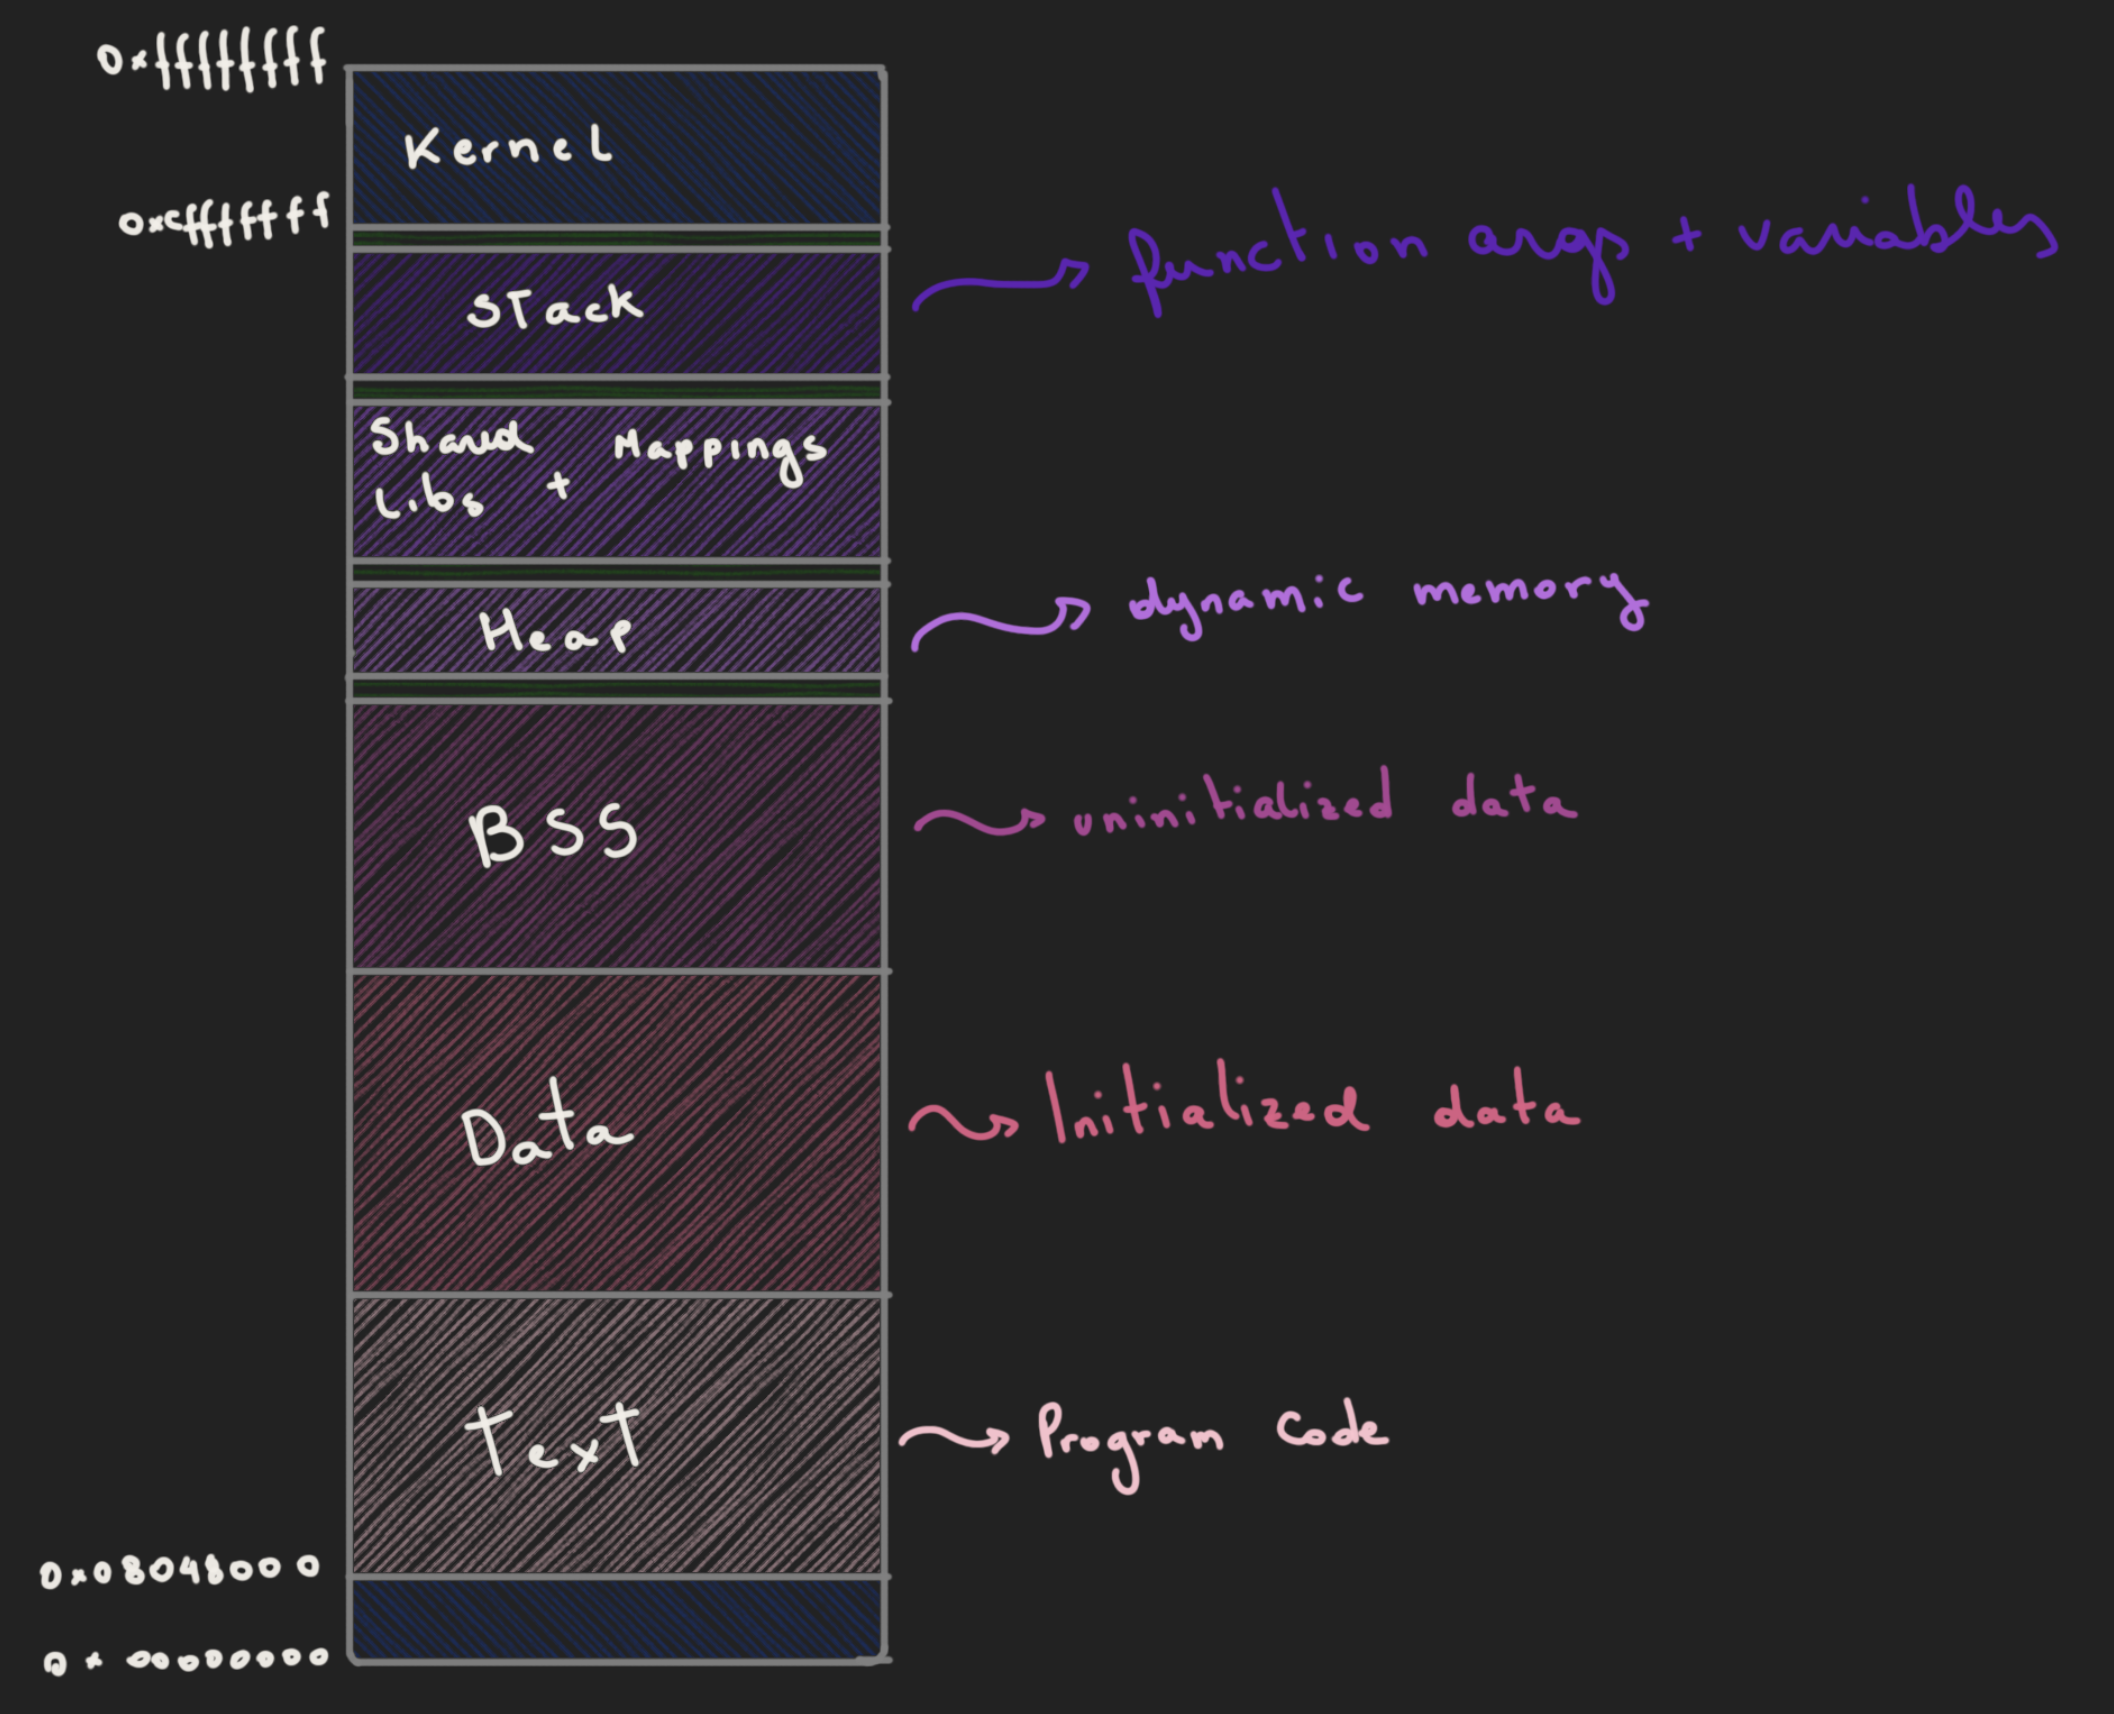 0xffffffff
Kernel
0xcfffffff
Stack
function args + variables
Shared Mappings
Libs +
Heap
dynamic memory
BSS
uninitialized data
Data
Initialized data
Text
Program Code
0x08048000
0x00000000